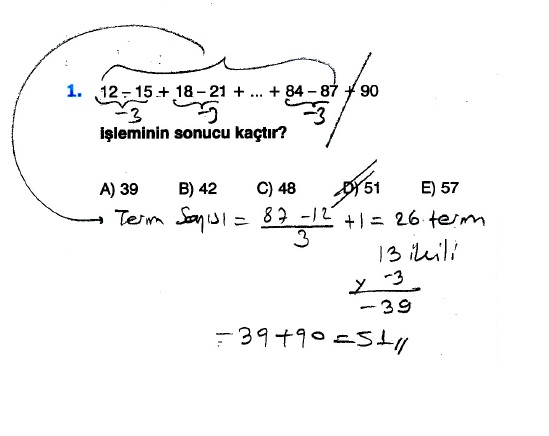 1. 12 – 15 + 18 – 21 + ... + 84 – 87 + 90
-3 -3 -3
işleminin sonucu kaçtır?
A) 39 B) 42 C) 48 D) 51 E) 57
Term Sayısı = 87 - 12 / 3 + 1 = 26 term
13 ikili
x -3
-39
-39 + 90 = 51 //